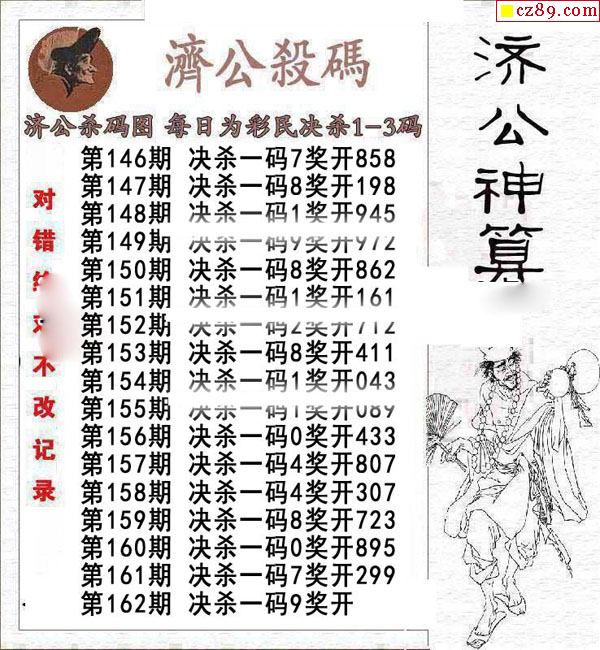 cz89.com
濟公殺碼
济公杀码图 每日为彩民决杀1-3码
第146期 决杀一码7奖开858
第147期 决杀一码8奖开198
第148期 决杀一码1奖开945
第149期 决杀一码9奖开972
第150期 决杀一码8奖开862
第151期 决杀一码1奖开161
第152期 决杀一码2奖开712
第153期 决杀一码8奖开411
第154期 决杀一码1奖开043
第155期 决杀一码1奖开089
第156期 决杀一码0奖开433
第157期 决杀一码4奖开807
第158期 决杀一码4奖开307
第159期 决杀一码8奖开723
第160期 决杀一码0奖开895
第161期 决杀一码7奖开299
第162期 决杀一码9奖开
对错 不改记录
济公神算